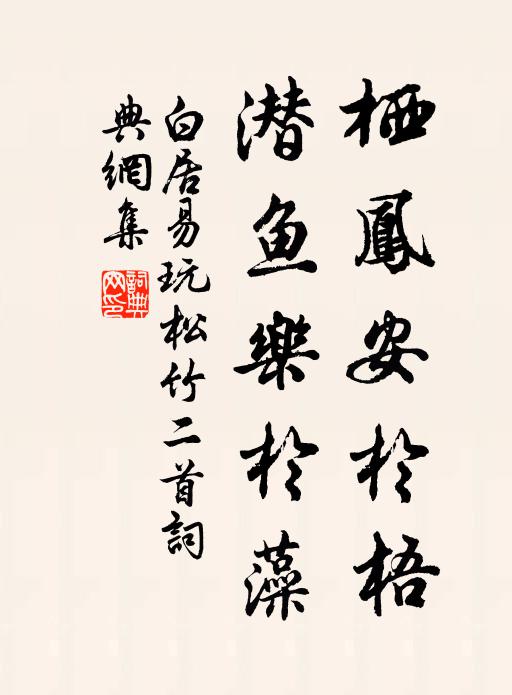 栖鳳安於梧
潜鱼樂於藻
白居易玩松竹二首詞
典網集
詞典網印